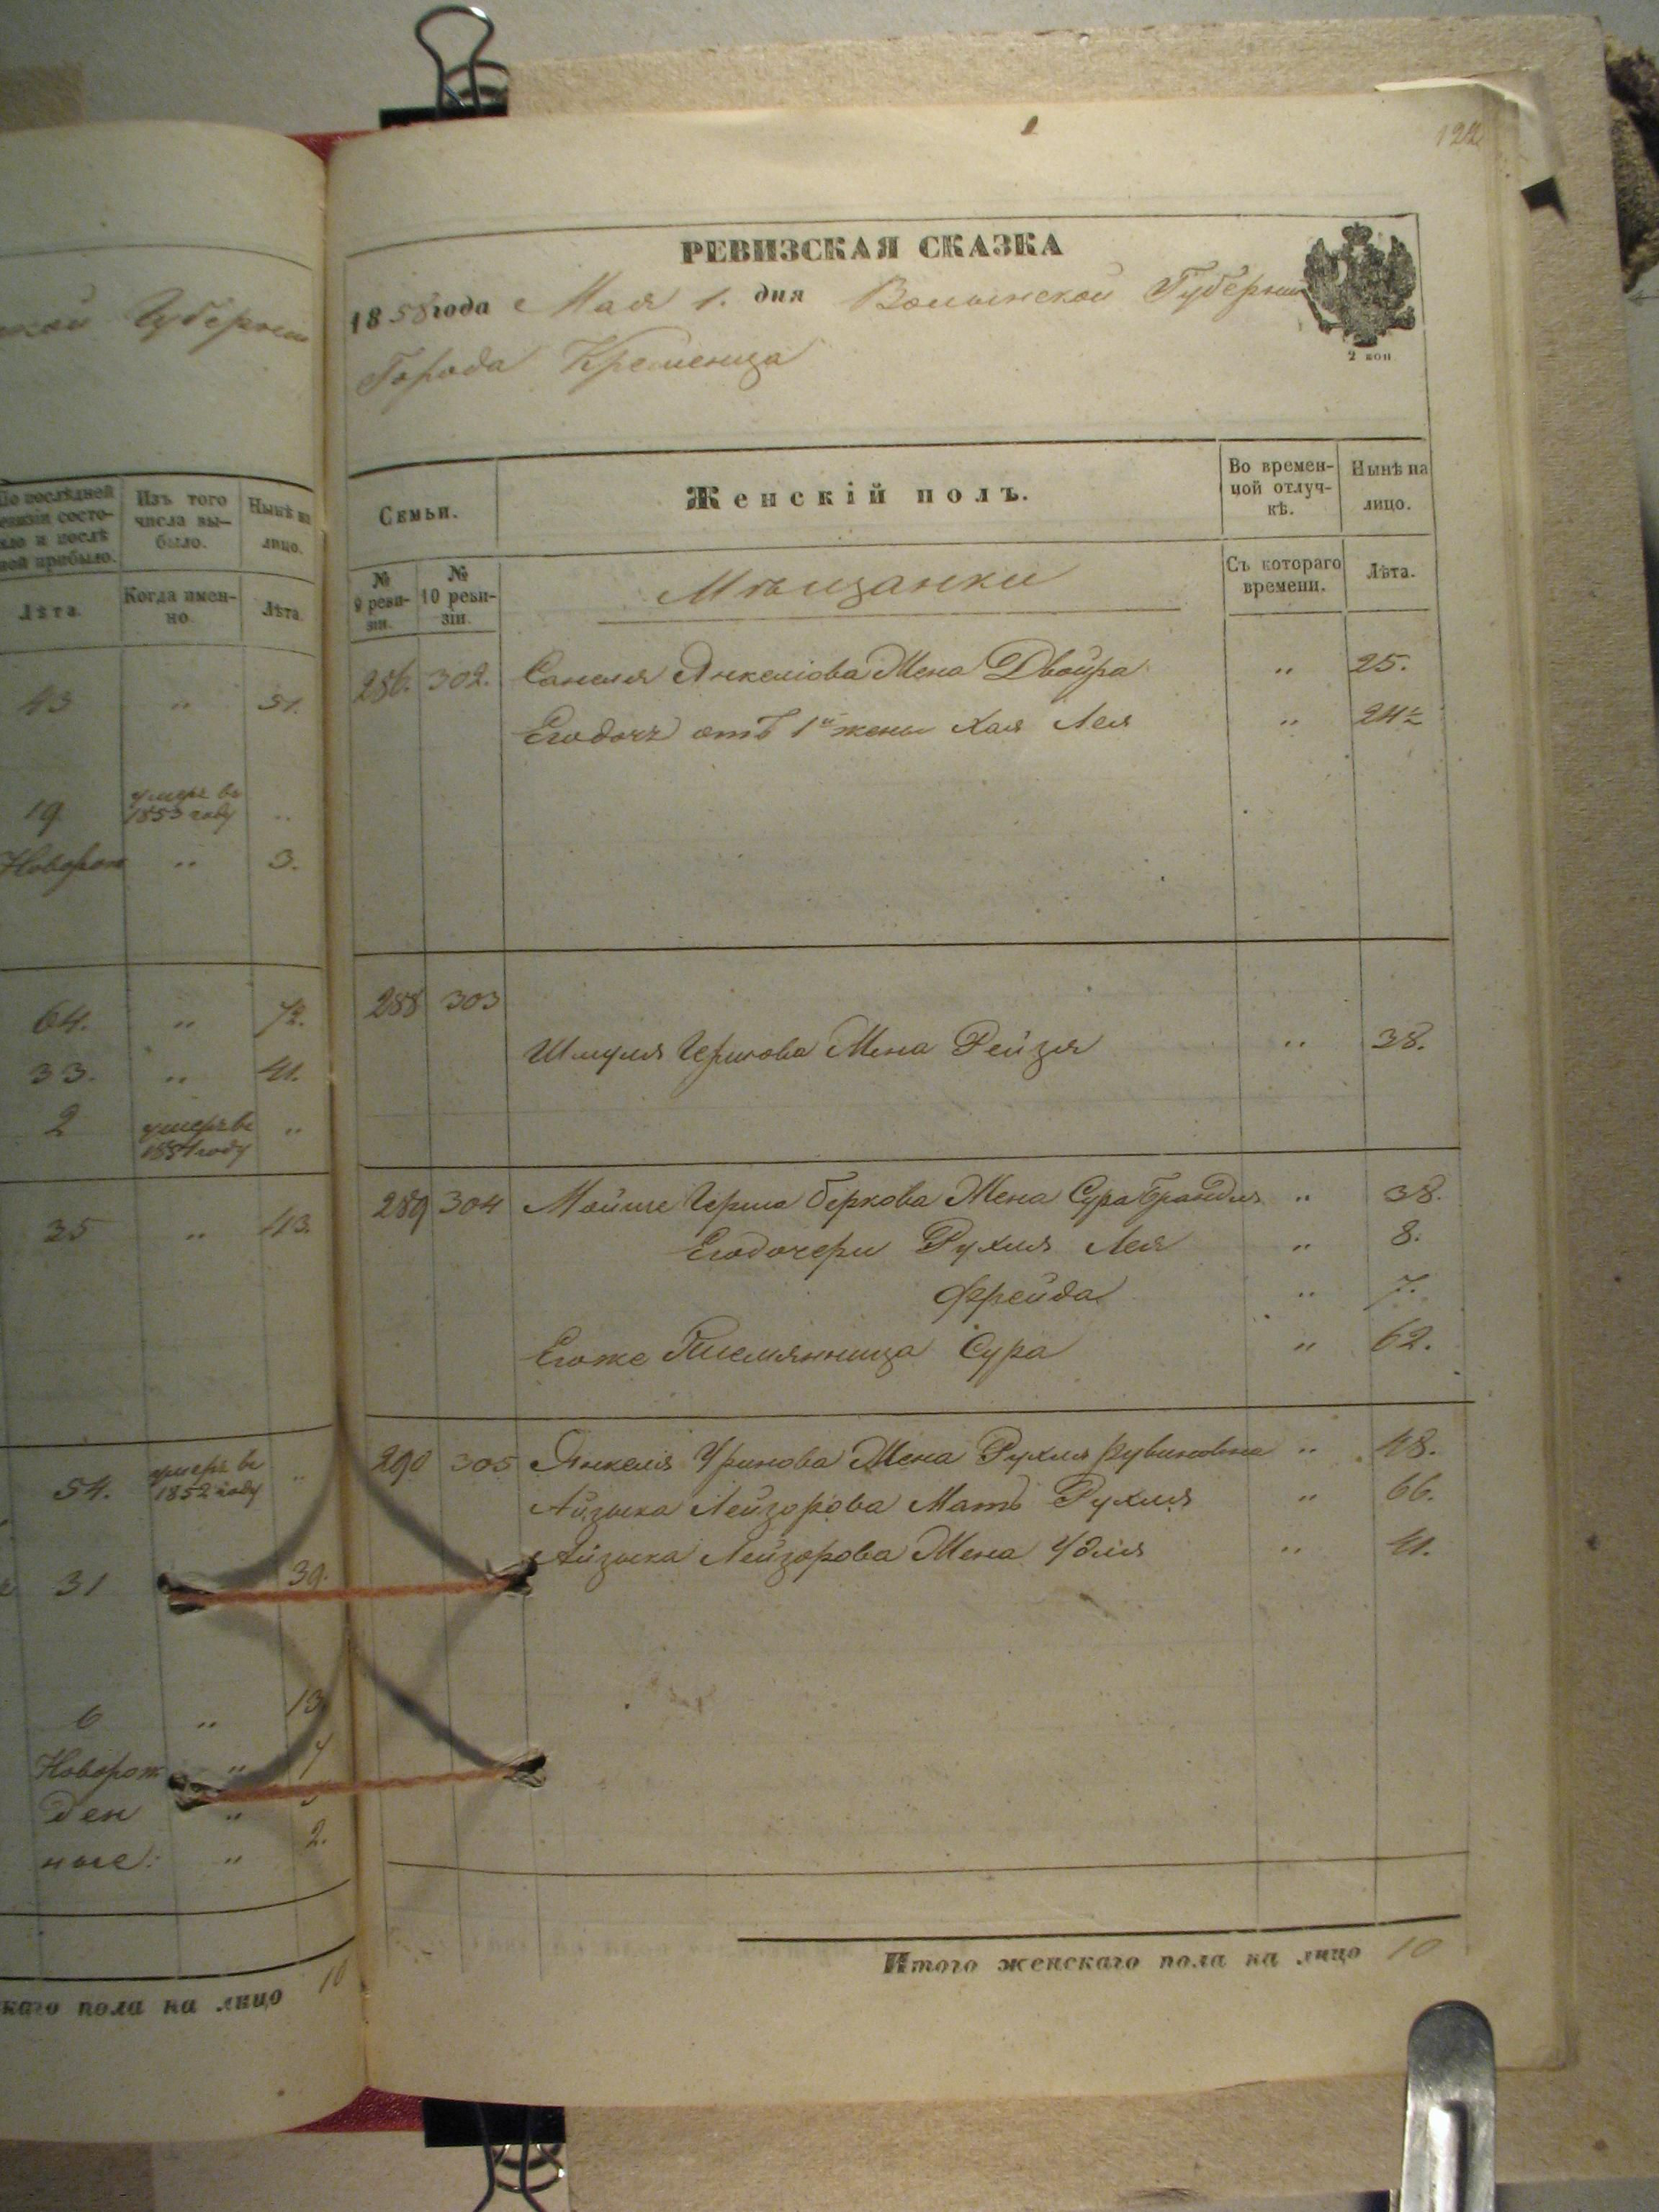 Губерніи
По послѣдней ревизіи состояло и послѣ оной прибыло.
Изъ того числа выбыло.
Нынѣ на лицо.
Лѣта.
Когда именно.
Лѣта.
43 " 51.
19 умеръ въ 1853 году "
Новорож " 3.
64. " 72.
33. " 41.
2 умеръ въ 1851 году "
35 " 43.
54. умеръ въ 1852 году "
31 39.
6 " 13
Новорож " 7
ден "
ные: " 2.
каго пола на лицо 10
122
РЕВИЗСКАЯ СКАЗКА
1858 года Мая 1. дня Волынской Губерніи
2 коп
Города Кременца
Семьи.
Женскій полъ.
Во временной отлучкѣ.
Нынѣ на лицо.
№ 9 ревизіи.
№ 10 ревизіи.
Мѣщанки
Съ котораго времени.
Лѣта.
286. 302. Янкеліова Жена Двойра " 25.
Егодочь отъ 1й жены Хая Лея " 24½
288 303
Шмуля Гершова Жена Рейзля " 38.
289 304 Мойше Герша Беркова Жена Сура Брандля " 38.
Егодочери Рухля Лея " 8.
Фрейда " 7.
Егоже Племянница Сура " 62.
290 305 Янкеля Жена Рухля Рувиновна " 48.
Айзыка Лейзорова Мать Рухля " 66.
Айзыка Лейзорова Жена Удля " 41.
Итого женскаго пола на лицо 10